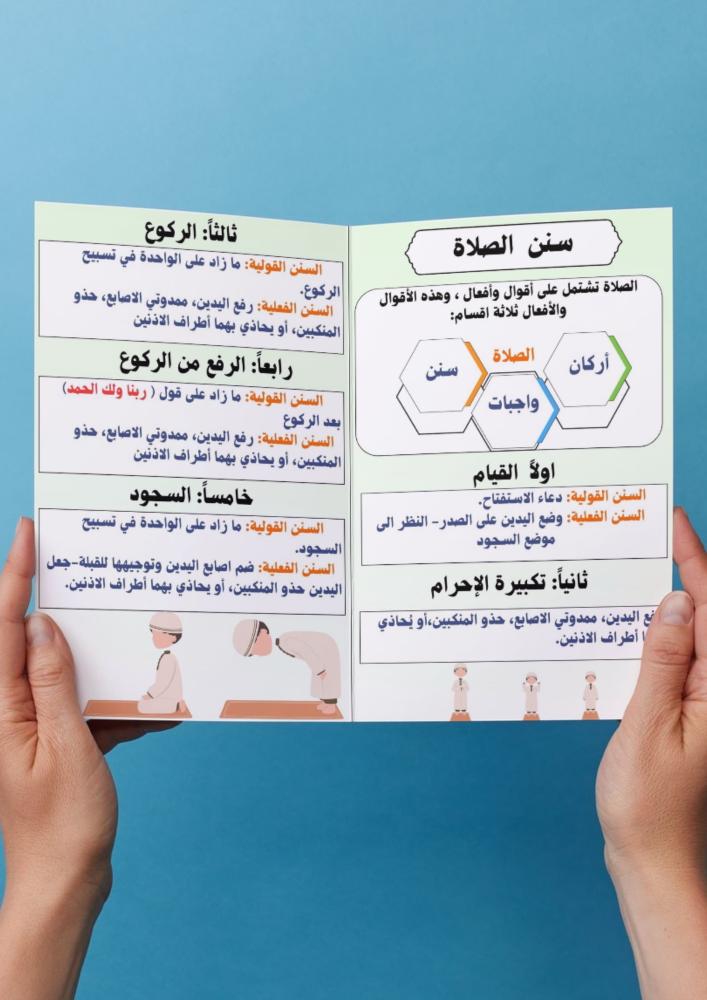 سنن الصلاة
الصلاة تشتمل على أقوال وأفعال ، وهذه الأقوال
والأفعال ثلاثة اقسام:
الصلاة
أركان
واجبات
سنن
اولاً القيام
السنن القولية: دعاء الاستفتاح.
السنن الفعلية: وضع اليدين على الصدر- النظر الى
موضع السجود
ثانياً: تكبيرة الإحرام
اليدين، ممدوتي الاصابع، حذو المنكبين،أو يُحاذي
أطراف الاذنين.
ثالثاً: الركوع
السنن القولية: ما زاد على الواحدة في تسبيح
الركوع.
السنن الفعلية: رفع اليدين، ممدوتي الاصابع، حذو
المنكبين، أو يحاذي بهما أطراف الاذنين
رابعاً: الرفع من الركوع
السنن القولية: ما زاد على قول ( ربنا ولك الحمد)
بعد الركوع
السنن الفعلية: رفع اليدين، ممدوتي الاصابع، حذو
المنكبين، أو يحاذي بهما أطراف الاذنين
خامساً: السجود
السنن القولية: ما زاد على الواحدة في تسبيح
السجود.
السنن الفعلية: ضم اصابع اليدين وتوجيهها للقبلة-جعل
اليدين حذو المنكبين، أو يحاذي بهما أطراف الاذنين.